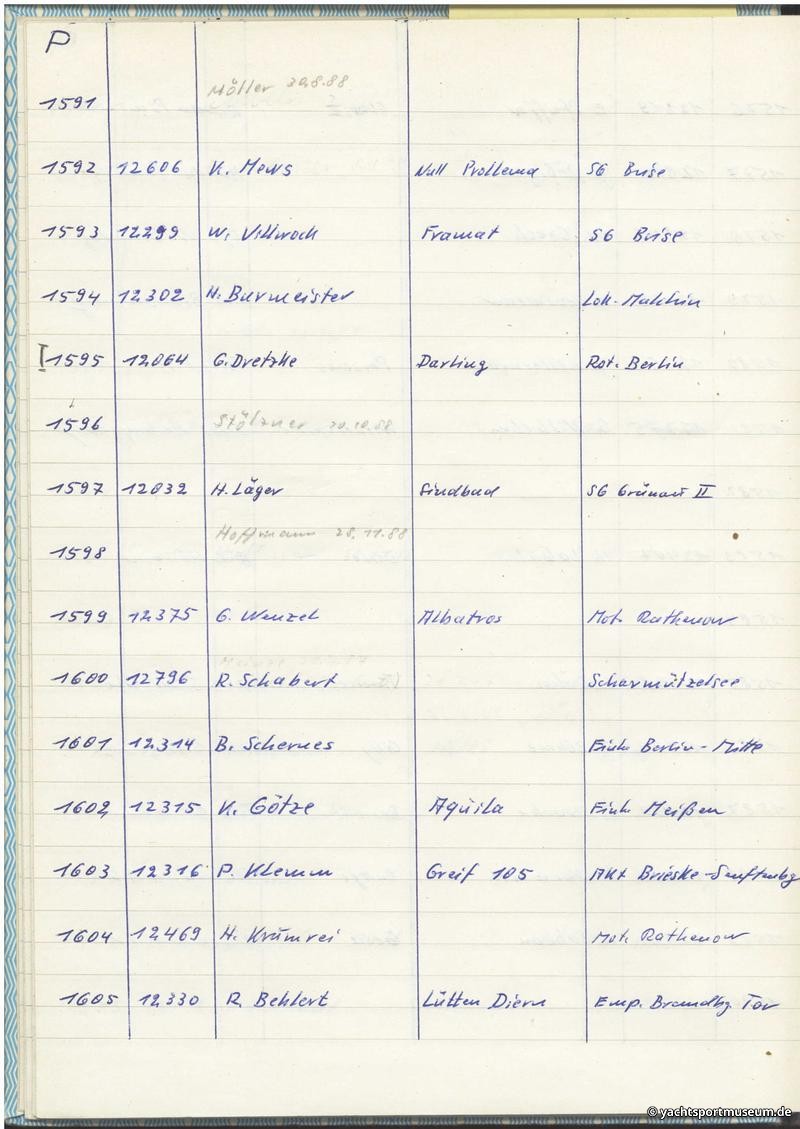 P
Möller 30.8.88
1591
1592 12606 K. Mews Null Problema SG Brise
1593 12299 W. Villwock Framat SG Brise
1594 12302 H. Burmeister Lok. Malchin
I 1595 12064 G. Dretzke Darling Rot. Berlin
1596 Stölzner 20.10.88
1597 12032 H. Läger Sindbad SG Grünau II
Hoffmann 28.11.88
1598
1599 12375 G. Wenzel Albatros Mot. Rathenow
1600 12796 R. Schabert Scharmützelsee
1601 12314 B. Schernes Einh. Berlin-Mitte
1602 12315 K. Götze Aquila Einh. Meißen
1603 12316 P. Klemm Greif 105 Akt Brieske-Senftenbg
1604 12469 H. Krumrei Mot. Rathenow
1605 12330 R. Behlert Lütten Diern Emp. Brandbg. Tor
© yachtsportmuseum.de